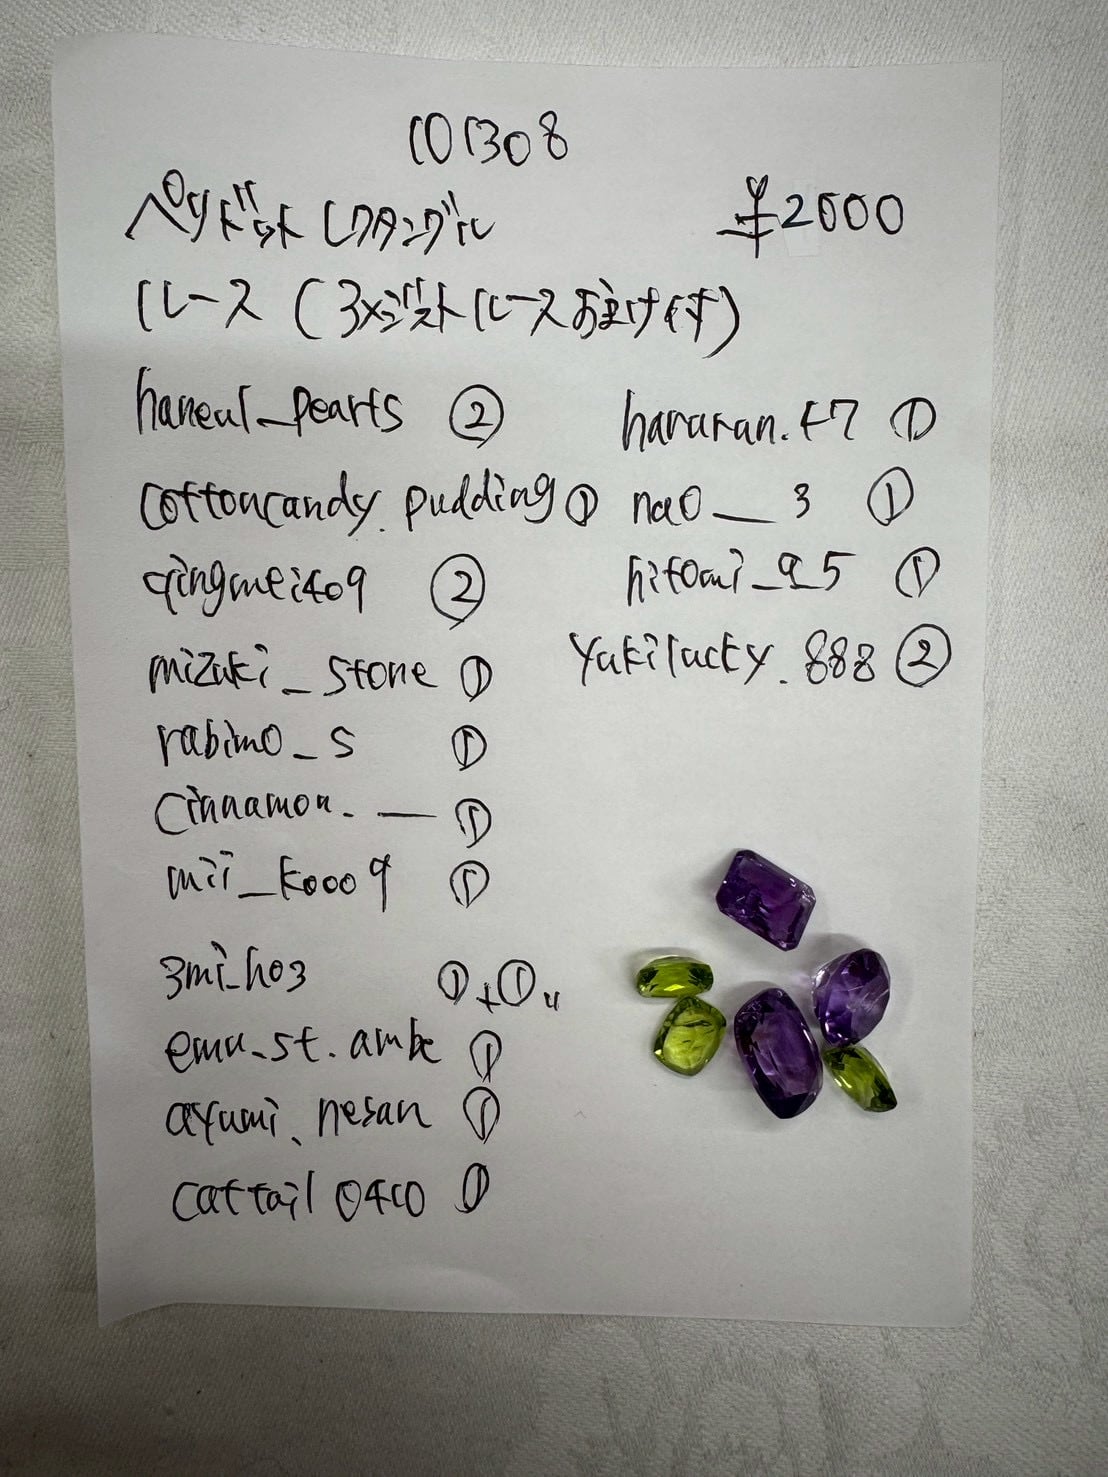 101308
ペリドットレクタングル ¥2000
ルース (
haneul_pearls ②
cottoncandy.pudding ①
qingmei409 ②
mizuki_stone ①
rabimo_s ①
cinnamon.__ ①
mii_k0009 ①
3mi_ho3 ①+①
emu_st.ambe ①
ayumi.nesan ①
cattail0410 ①
hararan.t7 ①
nao__3 ①
hitomi_9_5 ①
yukilucky.888 ②